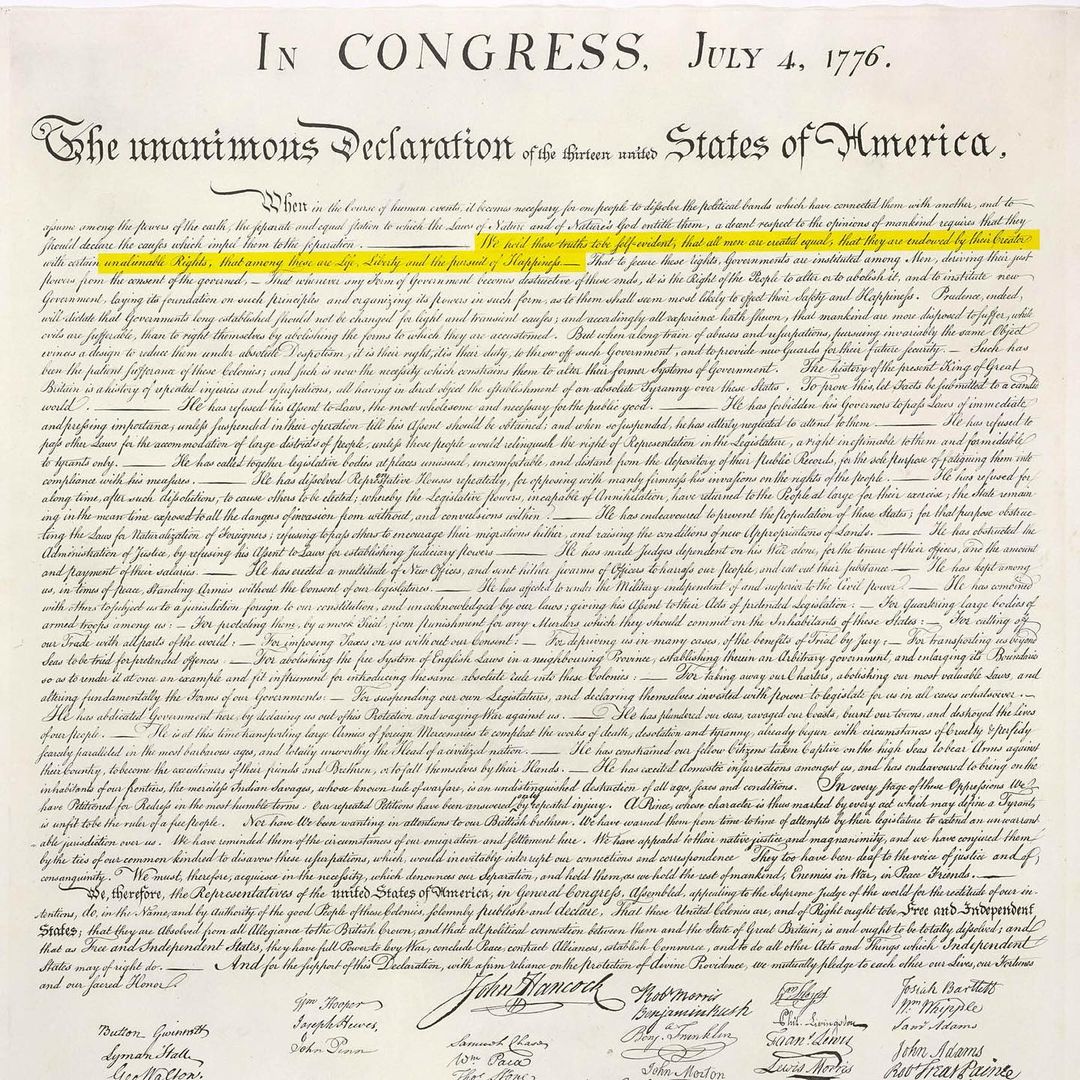 IN CONGRESS, JULY 4, 1776.
The unanimous Declaration of the thirteen united States of America,
When in the Course of human events, it becomes necessary for one people to dissolve the political bands which have connected them with another, and to
assume among the powers of the earth, the separate and equal station to which the Laws of Nature and of Nature's God entitle them, a decent respect to the opinions of mankind requires that they
should declare the causes which impel them to the separation. We hold these truths to be self-evident, that all men are created equal, that they are endowed by their Creator
with certain unalienable Rights, that among these are Life, Liberty and the pursuit of Happiness.— That to secure these rights, Governments are instituted among Men, deriving their just
powers from the consent of the governed, — That whenever any Form of Government becomes destructive of these ends, it is the Right of the People to alter or to abolish it, and to institute new
Government, laying its foundation on such principles and organizing its powers in such form, as to them shall seem most likely to effect their Safety and Happiness. Prudence, indeed,
will dictate that Governments long established should not be changed for light and transient causes; and accordingly all experience hath shewn, that mankind are more disposed to suffer, while
evils are sufferable, than to right themselves by abolishing the forms to which they are accustomed. But when a long train of abuses and usurpations, pursuing invariably the same Object
evinces a design to reduce them under absolute Despotism, it is their right, it is their duty, to throw off such Government, and to provide new Guards for their future security. — Such has
been the patient sufferance of these Colonies; and such is now the necessity which constrains them to alter their former Systems of Government. The history of the present King of Great
Britain is a history of repeated injuries and usurpations, all having in direct object the establishment of an absolute Tyranny over these States. To prove this, let Facts be submitted to a candid
world. — He has refused his Assent to Laws, the most wholesome and necessary for the public good. — He has forbidden his Governors to pass Laws of immediate
and pressing importance, unless suspended in their operation till his Assent should be obtained; and when so suspended, he has utterly neglected to attend to them. — He has refused to
pass other Laws for the accommodation of large districts of people, unless those people would relinquish the right of Representation in the Legislature, a right inestimable to them and formidable
to tyrants only. — He has called together legislative bodies at places unusual, uncomfortable, and distant from the depository of their Public Records, for the sole purpose of fatiguing them into
compliance with his measures. — He has dissolved Representative Houses repeatedly, for opposing with manly firmness his invasions on the rights of the people. — He has refused for
a long time, after such dissolutions, to cause others to be elected; whereby the Legislative powers, incapable of Annihilation, have returned to the People at large for their exercise; the State remain
ing in the mean time exposed to all the dangers of invasion from without, and convulsions within. — He has endeavoured to prevent the population of these States; for that purpose obstruc-
ting the Laws for Naturalization of Foreigners; refusing to pass others to encourage their migrations hither, and raising the conditions of new Appropriations of Lands. — He has obstructed the
Administration of Justice, by refusing his Assent to Laws for establishing Judiciary powers. — He has made Judges dependent on his Will alone, for the tenure of their offices, and the amount
and payment of their salaries. — He has erected a multitude of New Offices, and sent hither swarms of Officers to harrass our people, and eat out their substance. — He has kept among
us, in times of peace, Standing Armies without the Consent of our legislatures. — He has affected to render the Military independent of and superior to the Civil power. — He has combined
with others to subject us to a jurisdiction foreign to our constitution, and unacknowledged by our laws; giving his Assent to their Acts of pretended Legislation: — For Quartering large bodies of
armed troops among us: — For protecting them, by a mock Trial, from punishment for any Murders which they should commit on the Inhabitants of these States: — For cutting off
our Trade with all parts of the world: — For imposing Taxes on us without our Consent: — For depriving us in many cases, of the benefits of Trial by Jury: — For transporting us beyond
Seas to be tried for pretended offences: — For abolishing the free System of English Laws in a neighbouring Province, establishing therein an Arbitrary government, and enlarging its Boundaries
so as to render it at once an example and fit instrument for introducing the same absolute rule into these Colonies: — For taking away our Charters, abolishing our most valuable Laws, and
altering fundamentally the Forms of our Governments: — For suspending our own Legislatures, and declaring themselves invested with power to legislate for us in all cases whatsoever. —
He has abdicated Government here, by declaring us out of his Protection and waging War against us. — He has plundered our seas, ravaged our Coasts, burnt our towns, and destroyed the lives
of our people. — He is at this time transporting large Armies of foreign Mercenaries to compleat the works of death, desolation and tyranny, already begun with circumstances of Cruelty & perfidy
scarcely paralleled in the most barbarous ages, and totally unworthy the Head of a civilized nation. — He has constrained our fellow Citizens taken Captive on the high Seas to bear Arms against
their Country, to become the executioners of their friends and Brethren, or to fall themselves by their Hands. — He has excited domestic insurrections amongst us, and has endeavoured to bring on the
inhabitants of our frontiers, the merciless Indian Savages, whose known rule of warfare, is an undistinguished destruction of all ages, sexes and conditions. In every stage of these Oppressions We
have Petitioned for Redress in the most humble terms: Our repeated Petitions have been answered only by repeated injury. A Prince, whose character is thus marked by every act which may define a Tyrant,
is unfit to be the ruler of a free people. Nor have We been wanting in attentions to our Brittish brethren. We have warned them from time to time of attempts by their legislature to extend an unwarrant-
able jurisdiction over us. We have reminded them of the circumstances of our emigration and settlement here. We have appealed to their native justice and magnanimity, and we have conjured them
by the ties of our common kindred to disavow these usurpations, which, would inevitably interrupt our connections and correspondence. They too have been deaf to the voice of justice and of
consanguinity. We must, therefore, acquiesce in the necessity, which denounces our Separation, and hold them, as we hold the rest of mankind, Enemies in War, in Peace Friends. —
We, therefore, the Representatives of the united States of America, in General Congress, Assembled, appealing to the Supreme Judge of the world for the rectitude of our in-
tentions, do, in the Name, and by Authority of the good People of these Colonies, solemnly publish and declare, That these United Colonies are, and of Right ought to be Free and Independent
States; that they are Absolved from all Allegiance to the British Crown, and that all political connection between them and the State of Great Britain, is and ought to be totally dissolved; and
that as Free and Independent States, they have full Power to levy War, conclude Peace, contract Alliances, establish Commerce, and to do all other Acts and Things which Independent
States may of right do. — And for the support of this Declaration, with a firm reliance on the protection of divine Providence, we mutually pledge to each other our Lives, our Fortunes
and our sacred Honor.
John Hancock
Button Gwinnett
Lyman Hall
Geo Walton.
Wm Hooper
Joseph Hewes,
John Penn
Samuel Chase
Wm Paca
Thos Stone
Robt Morris
Benjamin Rush
Benj. Franklin
John Morton
Wm Floyd
Phil. Livingston
Frans. Lewis
Lewis Morris
Josiah Bartlett
Wm Whipple
Saml Adams
John Adams
Robt Treat Paine